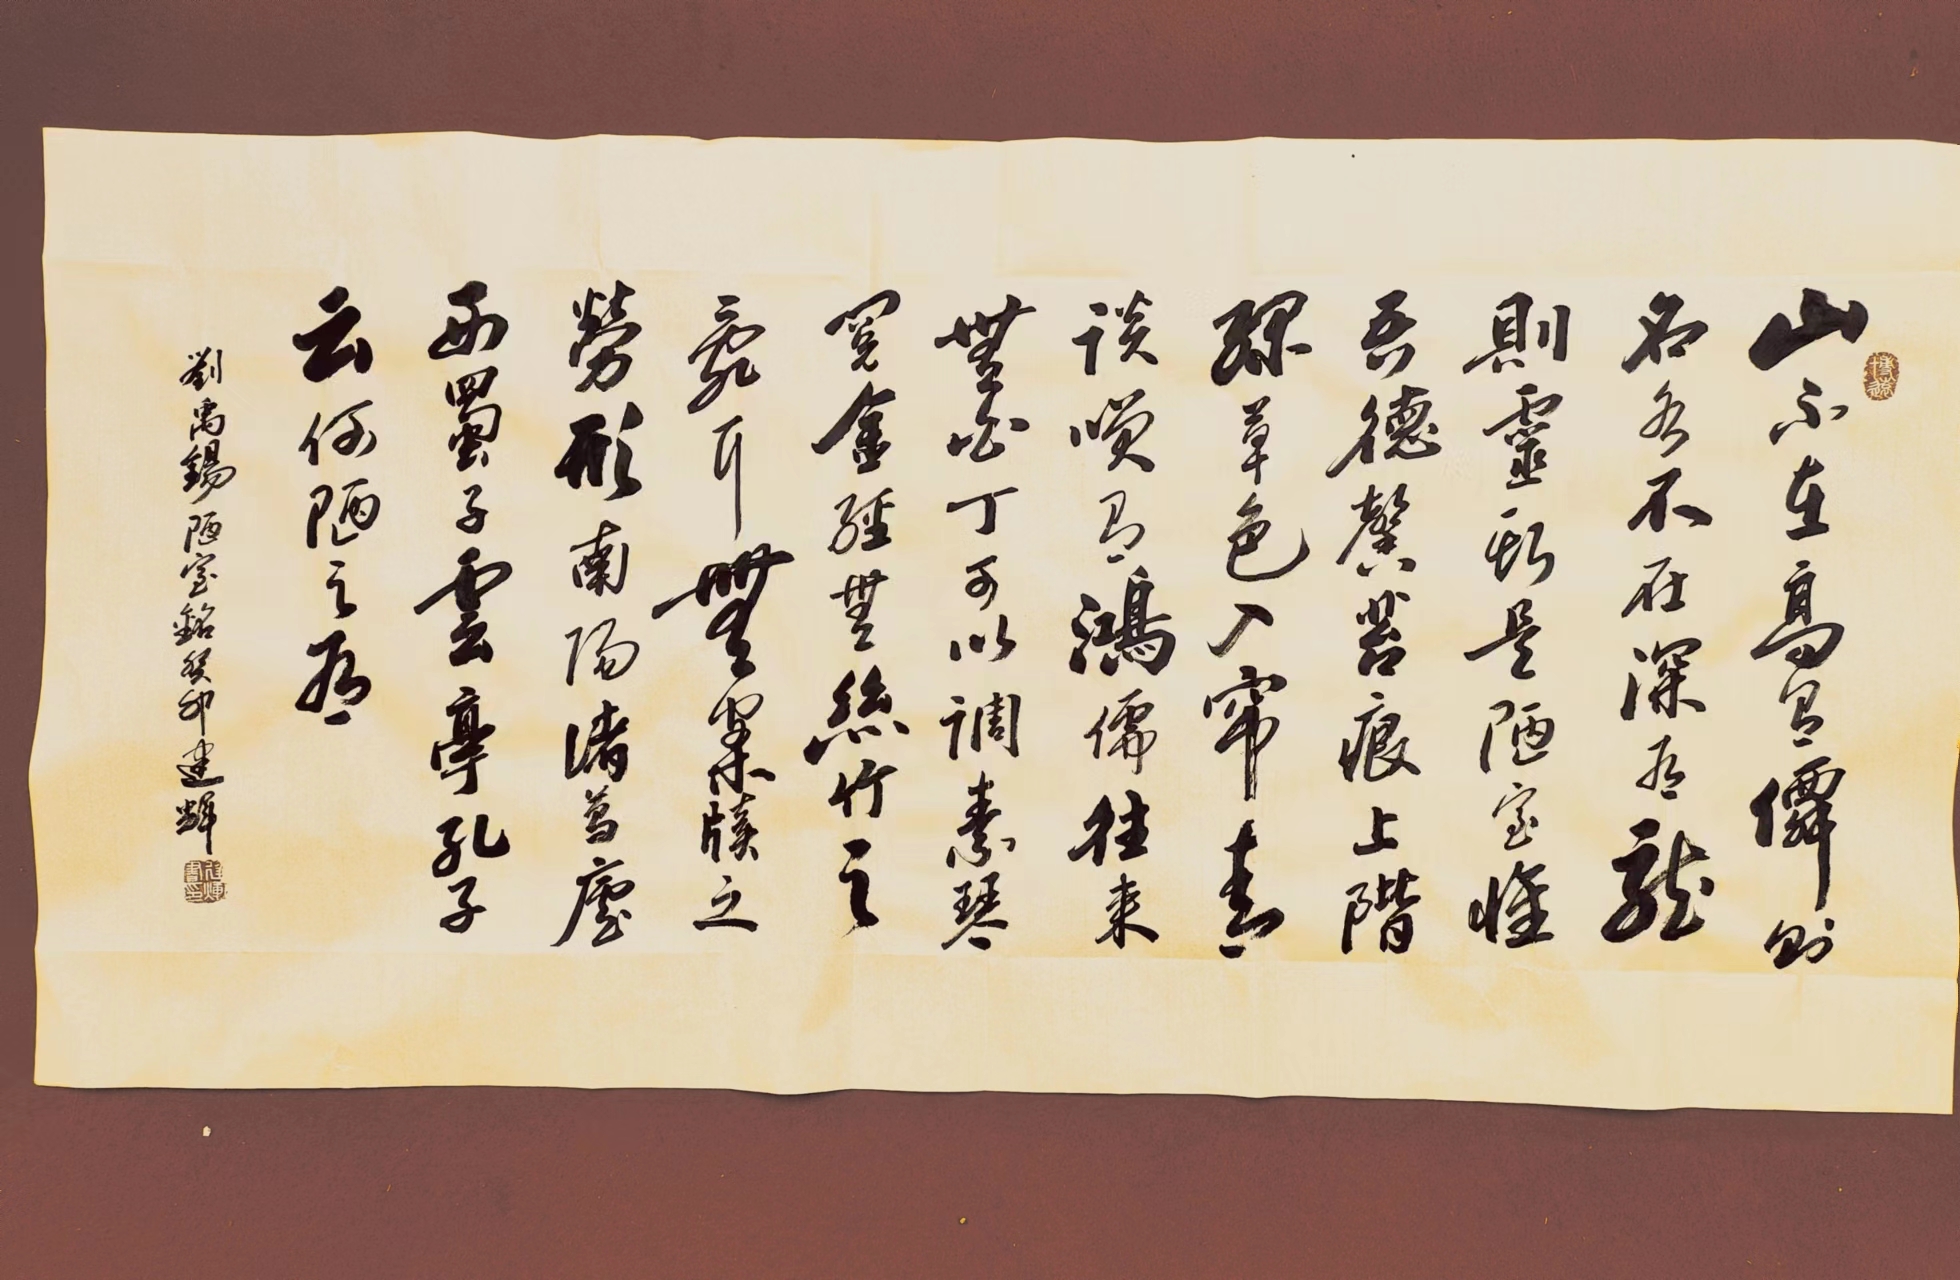 山不在高有僊則
名水不在深有龍
則靈斯是陋室惟
吾德馨苔痕上階
綠草色入帘青
談咲有鴻儒往来
無白丁可以調素琴
閱金經無絲竹之
亂耳無案牘之
勞形南陽諸葛廬
西蜀子雲亭孔子
云何陋之有
劉禹錫陋室銘癸卯建輝